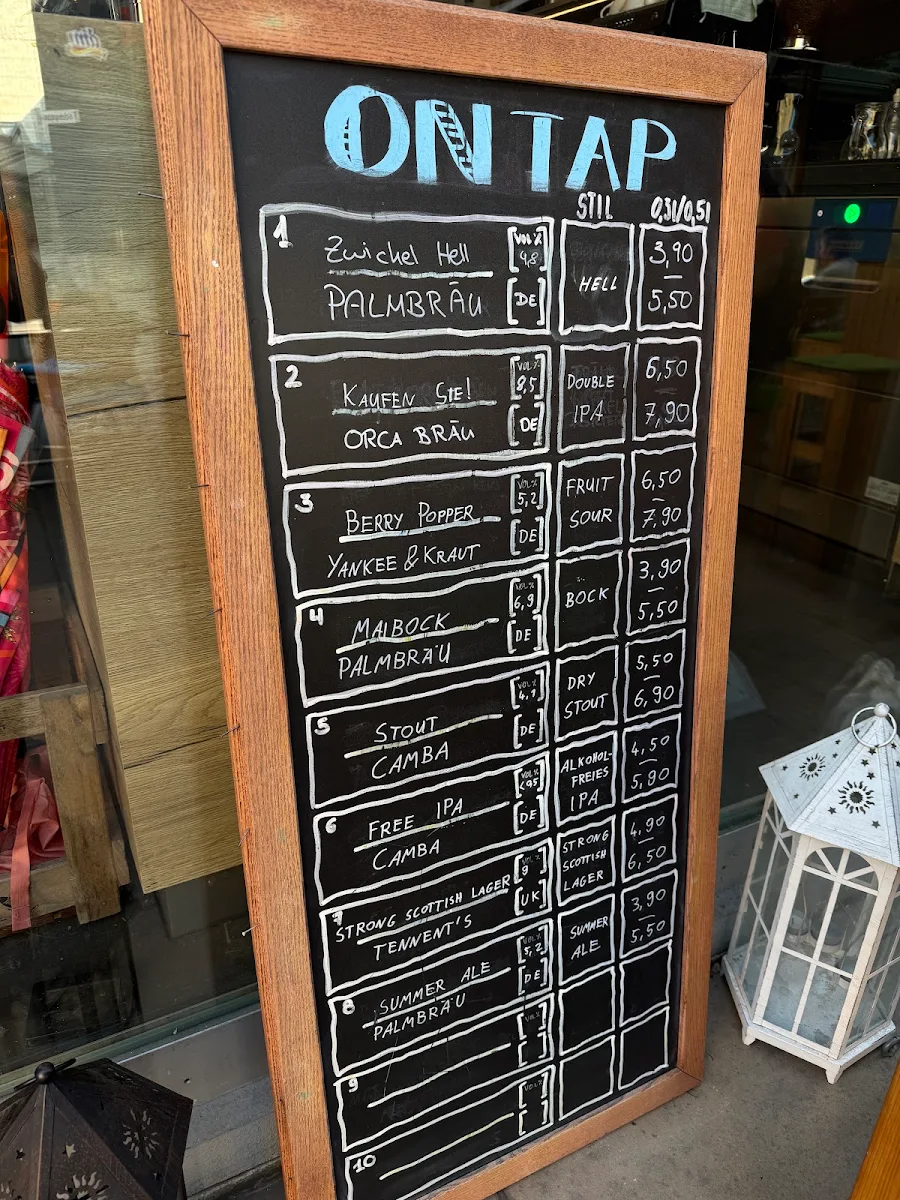 ON TAP
STIL 0,3l/0,5l
1 Zwickel Hell VOL% 4,8
PALMBRÄU DE HELL 3,90 5,50
2 KAUFEN SIE! VOL.% 8,5
ORCA BRÄU DE DOUBLE IPA 6,50 7,90
3 BERRY POPPER VOL% 5,2
YANKEE & KRAUT DE FRUIT SOUR 6,50 7,90
4 MAIBOCK VOL% 6,9
PALMBRÄU DE BOCK 3,90 5,50
5 STOUT VOL%
CAMBA DE DRY STOUT 5,50 6,90
6 FREE IPA VOL%
CAMBA DE ALKOHOL-FREIES IPA 4,50 5,90
7 STRONG SCOTTISH LAGER VOL% 9
TENNENT'S UK STRONG SCOTTISH LAGER 4,90 6,50
8 SUMMER ALE VOL% 5,2
PALMBRÄU DE SUMMER ALE 3,90 5,50
9 VOL%
10 VOL%